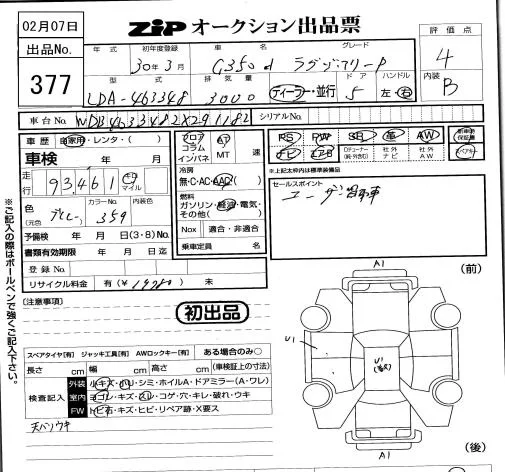 02月07日
ZIP オークション出品票
出品No.
377
年式 初年度登録 車名 グレード
30年3月 G350d ラグジュアリーP
評価点
4
内装
B
型式 排気量 ドア ハンドル
LDA-463348 3000 ディーラー・並行 5 左・右
車台No. WDB4633482X291182 シリアルNo.
車歴 自家用・レンタ・( )
車検 年 月
走行 93,461 キロ マイル
色 (元色) グレー カラーNo. 359 内装色
予備検 年 月 日(3・8)No.
書類有効期限 年 月 日迄
登録No.
リサイクル料金 有(¥ )
フロア コラム インパネ AT MT 速
冷房
無・C・AC・AAC
燃料
ガソリン・軽油・電気・その他( )
Nox 適合・非適合
乗車定員 名
PS PW SR 革 AW 新車時保証書
ナビ エアB Dチューナー(純・外含む) 社外ナビ 社外AW スペアキー
※上記太枠内は標準装備品
セールスポイント
ユーザー買取車
※ご記入の際はボールペンで強くご記入下さい。
[注意事項]
初出品
スペアタイヤ[有] ジャッキ工具[有] AWロックキー[有] ある場合のみ〇
長さ cm 幅 cm 高さ cm (車検証上の寸法)
検査記入
外装 小キズ・ハリ・シミ・ホイルA・ドアミラー(A・ワレ)
室内 ヨゴレ・キズ・スレ・コゲ・穴・キレ・破れ・ウキ
FW トビ石・キズ・ヒビ・リペア跡・X要ス
天バリウキ
A1
(前)
U1
U1
A1
(後)